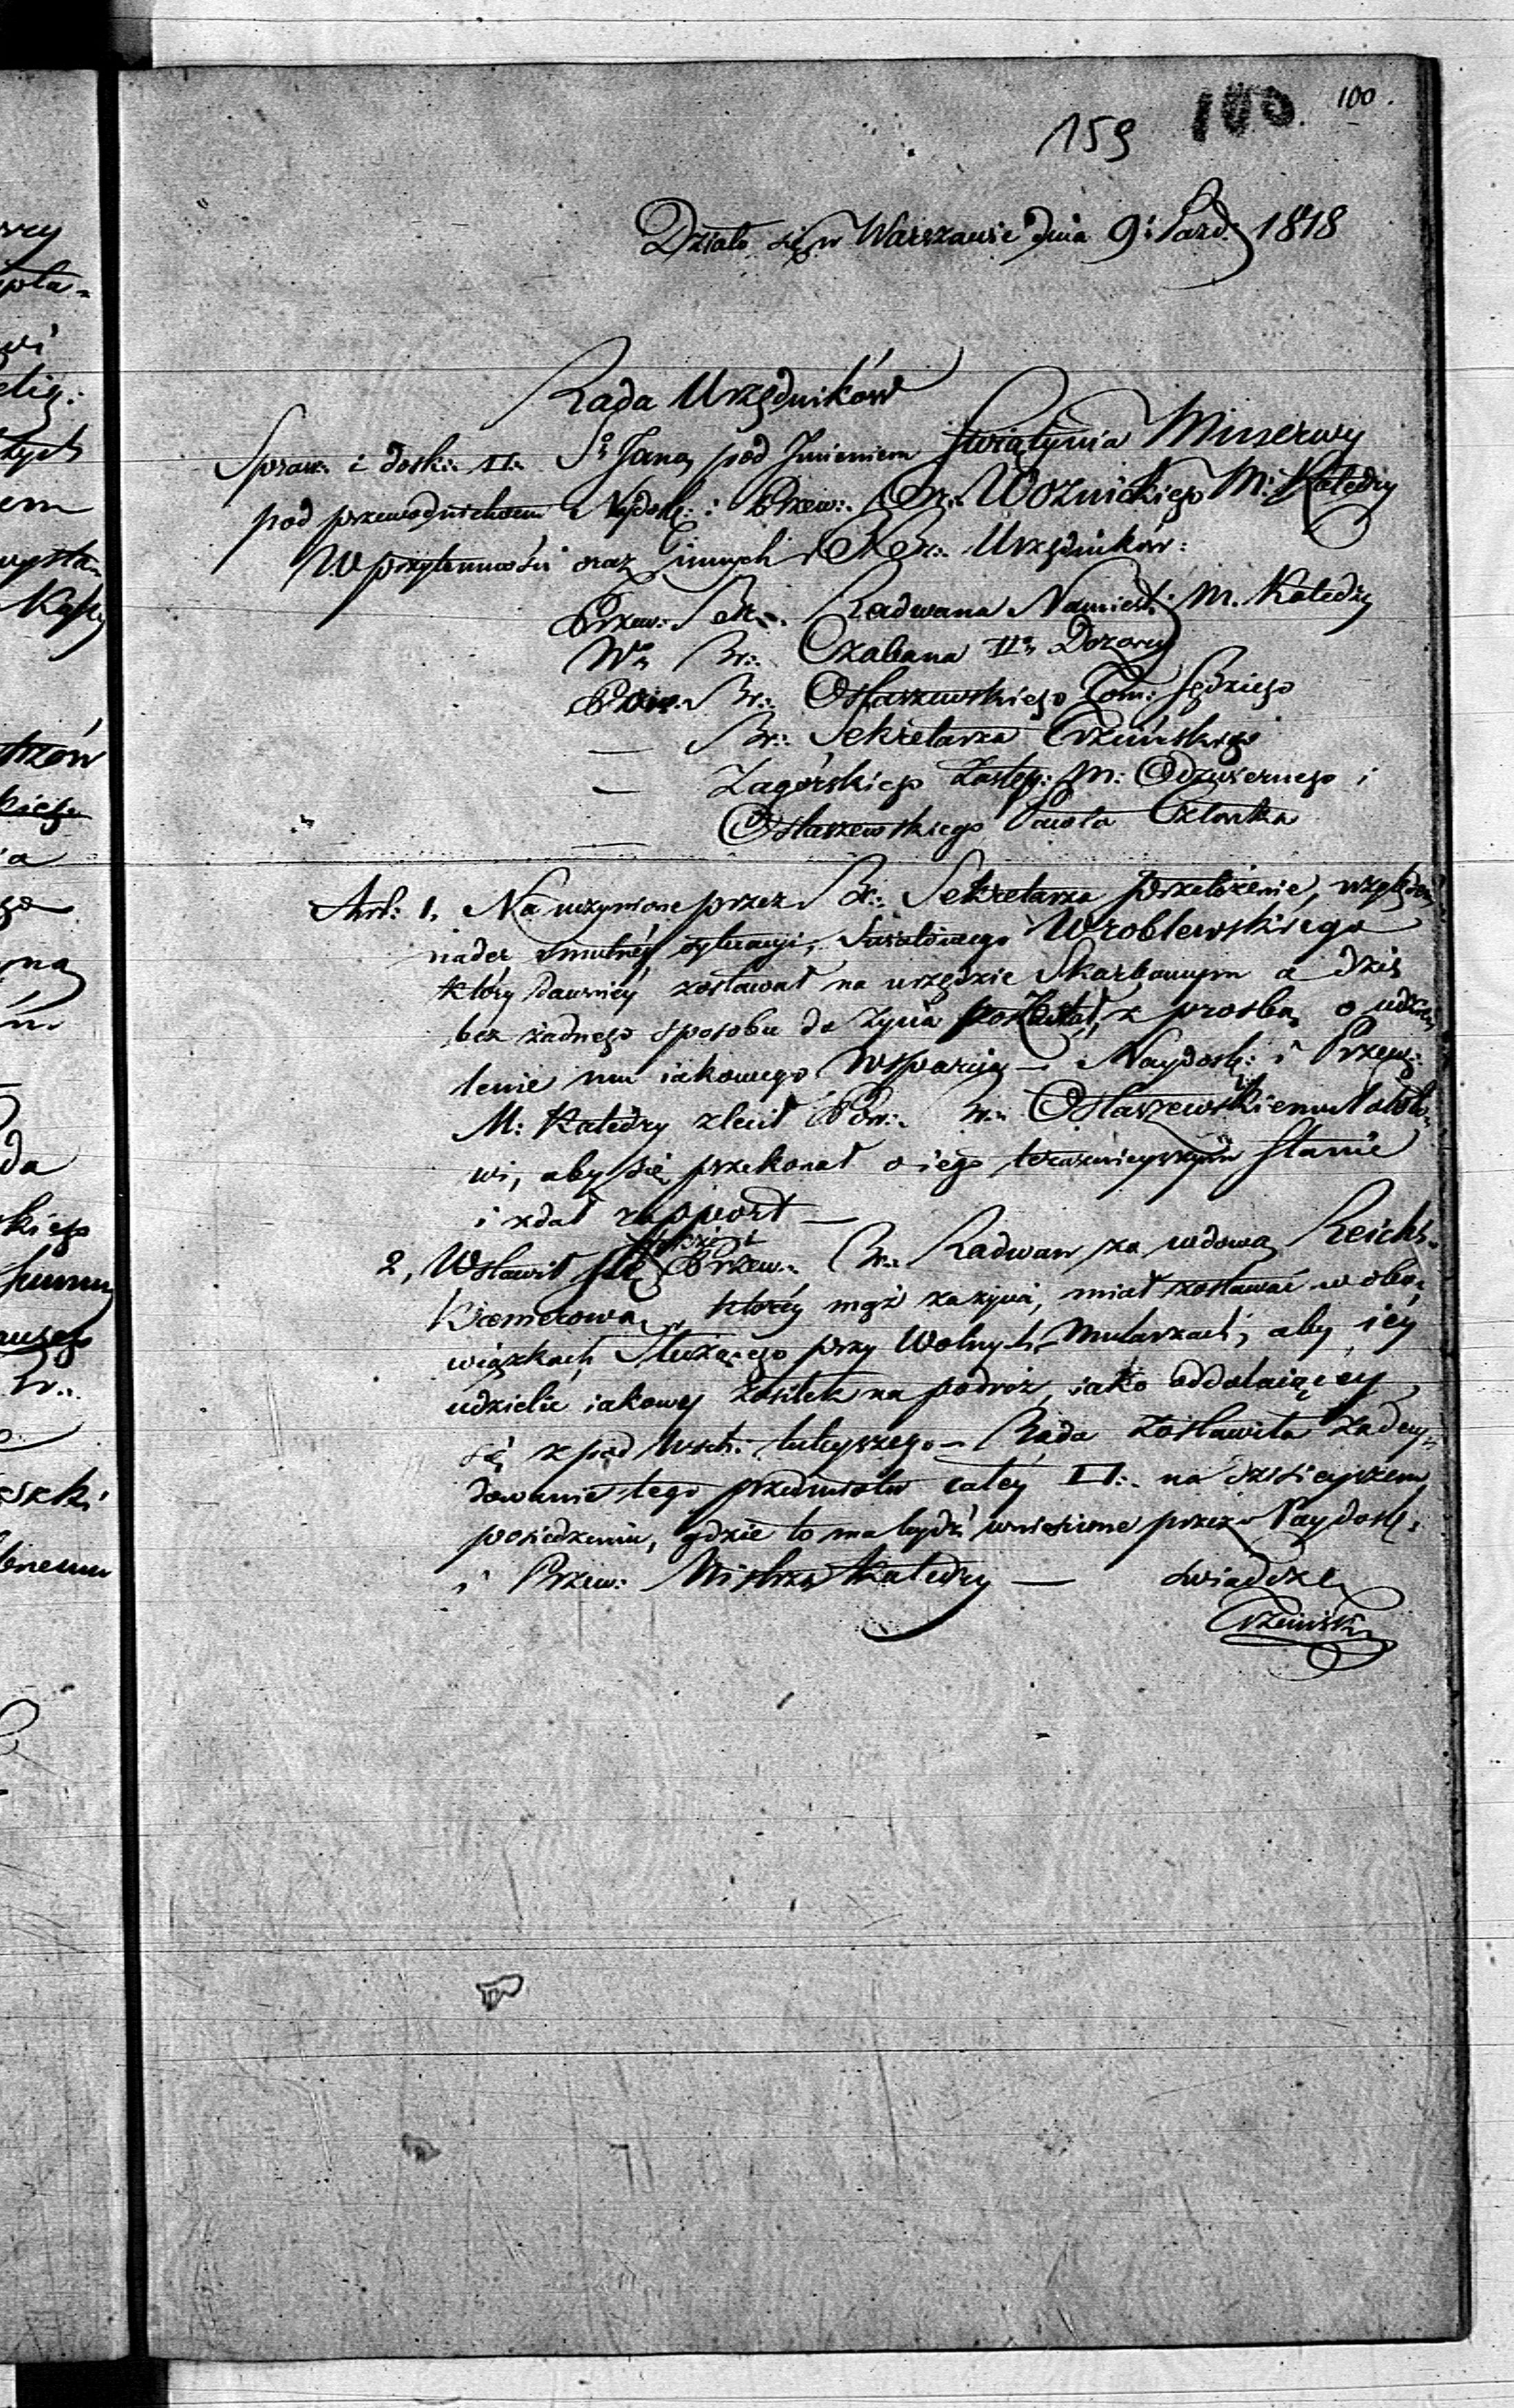 100.
159 100.
Działo się w Warszawie dnia 9: Pazd: 1818
Rada Urzędników
Spraw: i dosk: □: Sº Jana, pod Jmieniem Swiątynia Minerwy
pod przewodnictwem Naydosk: i Przew: Br: Woznickiego M: Katedry
W przytomności oraz innych KBr: Urzędników:
Przew: Br: Radwana Namiest: M. Katedry
Wº Br: Czabana IIº Dozorcy
Pow: Br: Ostaszewskiego Tom: Sędziego
— Br: Sekretarza Trzcińskiego
— Zagórskiego Zastęp: M: Odzwiernego i
— Ostaszewskiego Pawła Członka
Art: 1, Na uczynione przez Br: Sekretarza przełożenie, względem
nader smutnéy sytuacyi, Swiatowego Wroblewskiego
który dawniéy zostawał na urzędzie Skarbowym a dziś
bez żadnego sposobu do życia pozostał, z prosbą o udzie
lenie mu iakowego wsparcia — Naydosk: i Przew:
M: Katedry zlecił Pow: Br: Ostaszewskiemu
wi, aby się przekonał o iego teraznieyszym stanie
i zdał rapport —
2, Wstawił się Przew: Br: Radwan za wdową Reich
którey mąż za życia, miał zostawać w obo„
wiązkach Służącego przy Wolnych Mularzach, aby iéy
udzielić iakowy zasiłek na podróż, iako oddalaiącey
się z pod Wsch: tuteyszego — Rada zostawiła zadecy„
dowanie tego przedmiotu całéy □: na dzisieyszem
posiedzeniu, gdzie to ma bydź wniesione przez Naydosk:
i Przew: Mistrza Katedry — swiadczę
Trzciński